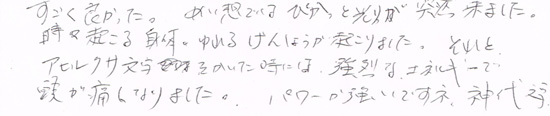 すごく良かった。めい想でいるひかっと光りが突然来ました。
時々起こる身体。ゆれるげんしょうが起こりました。それと
アヒルクサ文字をかいた時には、強烈なエネルギーで
頭が痛くなりました。パワーが強いですネ、神代文字